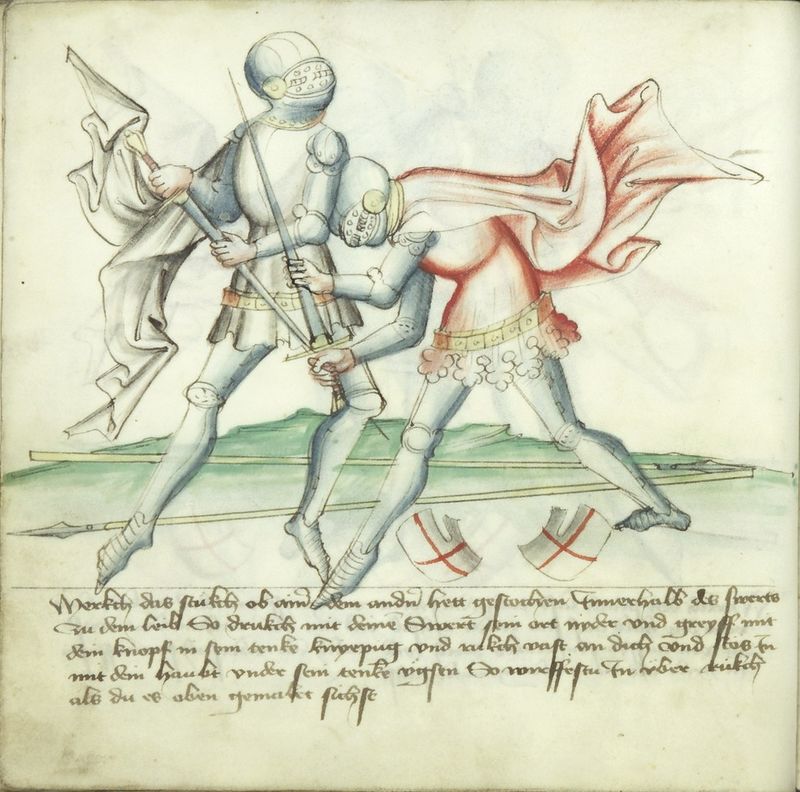 Merkch das stukch ob ainer dem andern hett gestochen Innerhalb des swerts
zu dem leib So drukch mit deinem Swert sein ort nyder vnd greyff mit
dein knopf in sein tenke knyepug vnd rukch vast an dich vnd stos In
mit dem haubt vnder sein tenke vgsen So wirffestu In vber rukch
als du es oben gemalet sichst